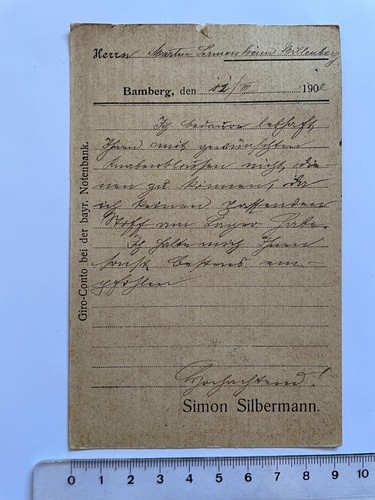 Herrn Martin Lermersheim Miltenberg
Bamberg, den 12/VI. 1900
Ich bedaure lebhaft
Ihnen mit gewünschten
Knabenblousen nicht die-
nen zu können, da
ich keinen passenden
Stoff am Lager habe.
Ich halte mich Ihnen
sonst bestens em-
pfohlen
Hochachtend!
Simon Silbermann.
Giro-Conto bei der bayr. Notenbank.
0 1 2 3 4 5 6 7 8 9 10